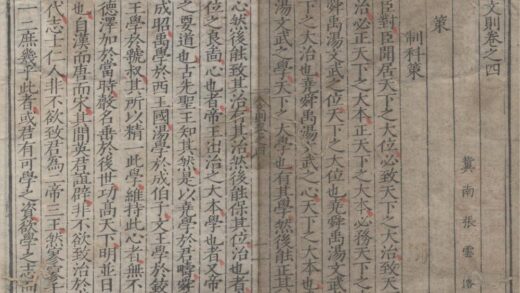 文則卷之四
冀南張雲
策
制科策
臣對臣聞居天下之大位必致天下之大治致天
治必正天下之大本正天下之大本必務天下之
舜禹湯文武之位天下之大位也堯舜禹湯文武
下之大治也堯舜禹湯文武之心天下之大本也
湯文武之學天下之大學也有其學然後能正其
心然後能致其治有其治然後能保其位治也者
位之良尚心也者帝王出治之大本學也者又帝
之要道也古先聖王知其然是以堯學於君疇舜
成昭禹學於西王國湯學於成伯子文王學於
王學於虢叔其所以精一此學維持此心者無不
德澤加於當時名垂於後世功高天下明並日
也自漢而唐而宋其間英君誼辟非不欲致治於
代志士仁人非不欲致君為二帝三王然寥寥
一二庶幾乎此者或君有可學之資欲學之志而